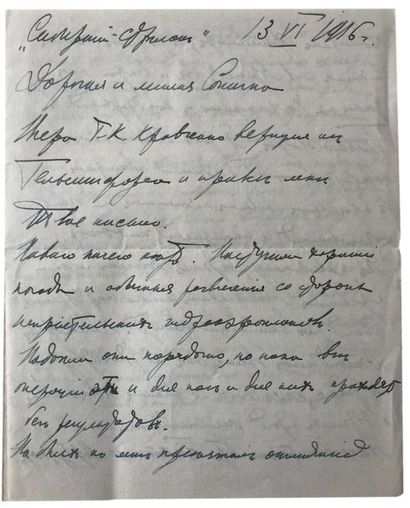 13 VI 1916 г.
Дорогая и милая Сонечка
Вчера Г-К Кравченко вернулся из
Гельсингфорса и привез мне
Твое письмо.
Нового ничего нет. Наступили хорошие
погоды и обычные развлечения со стороны
неприятельских гидроаэропланов.
Надоели они порядочно, но пока все
операции эти и для нас и для них проходят
без результатов.
На днях ко мне приезжал